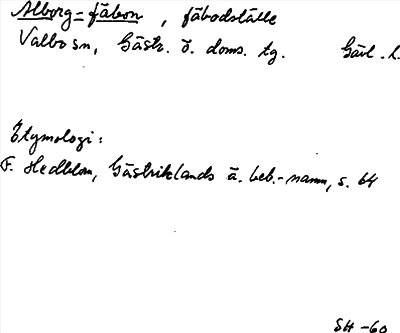 Alborg=fäbon, fäbodställe
Valbo sn, Gästr. ö. doms. tg. Gävl. l.
Etymologi:
F. Hedblom, Gästriklands ä. beb.-namn, s. 64
SH -60